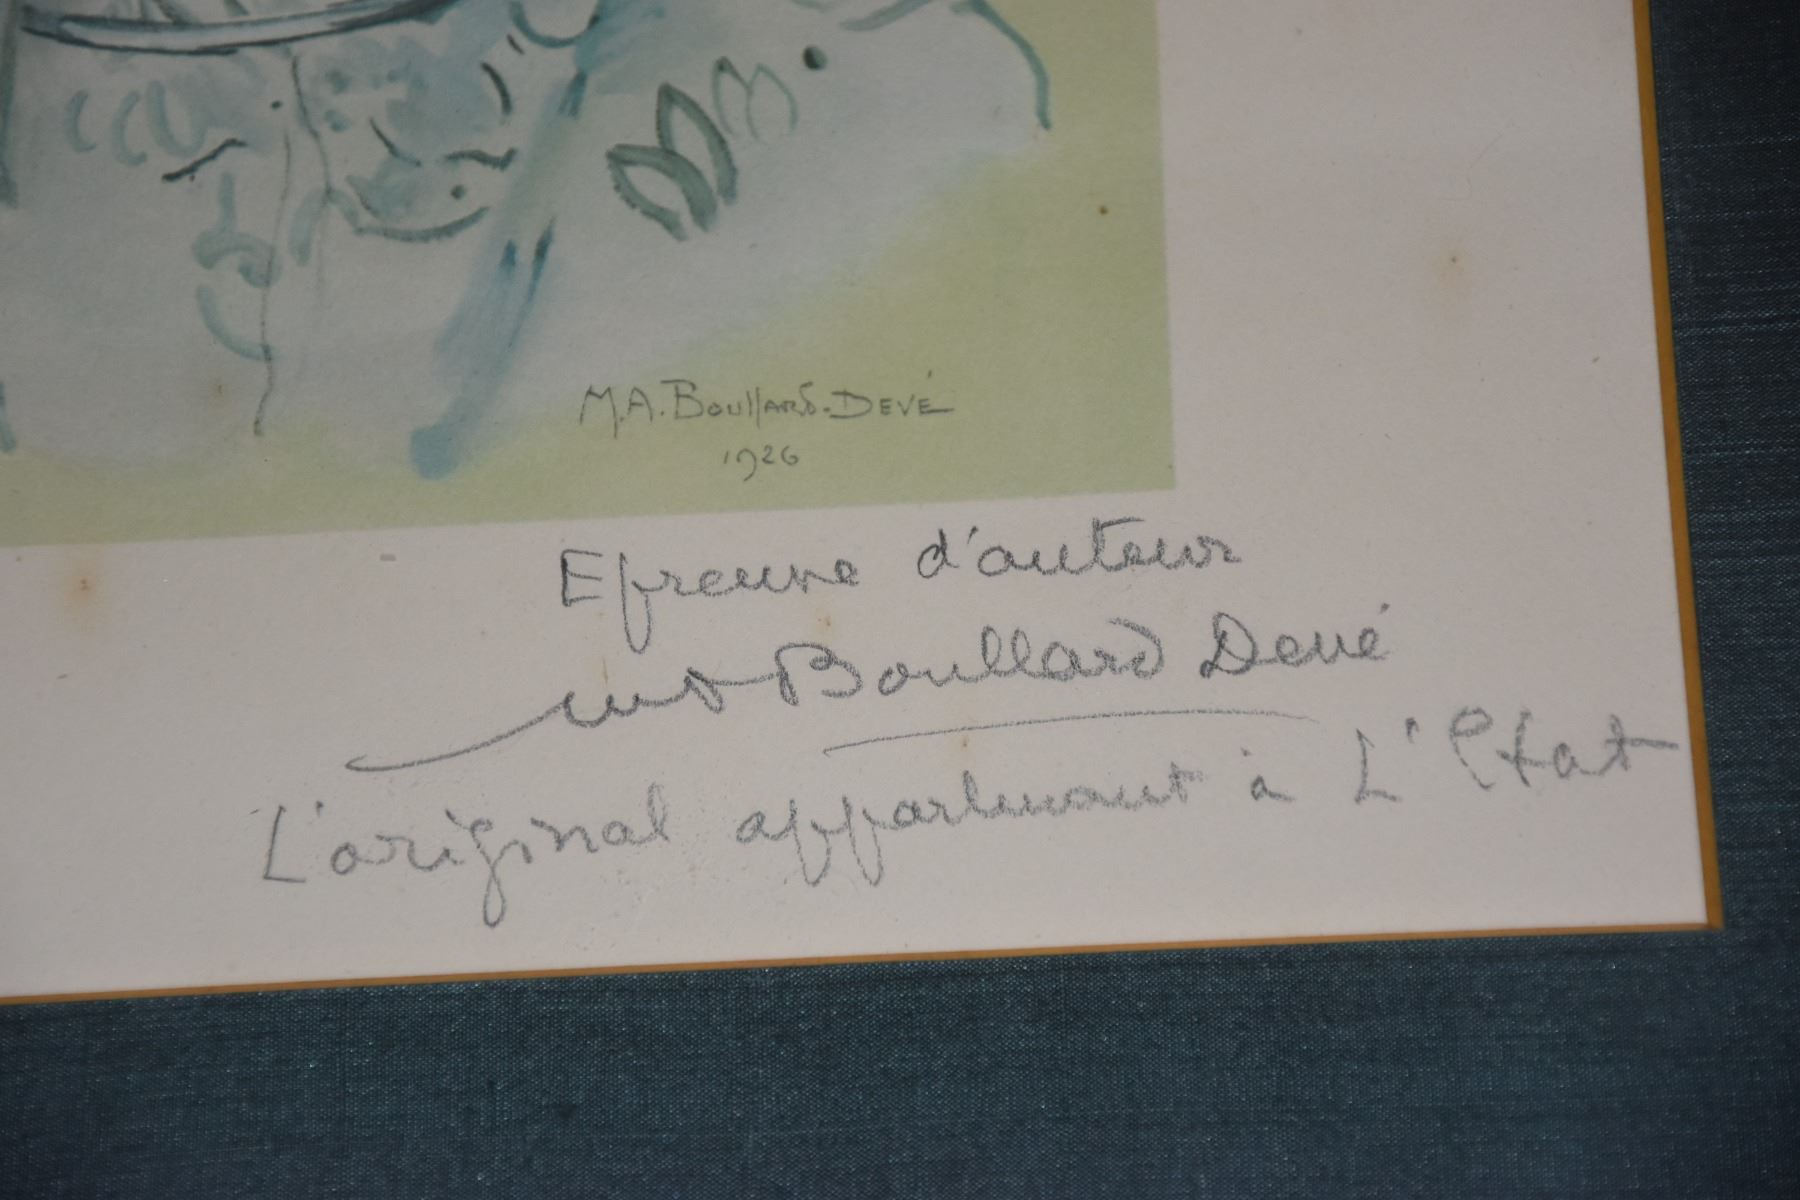 M.A. BOULLARD-DEVÉ
1926
Epreuve d'auteur
Boullard Devé
L'original appartenant à L'Etat